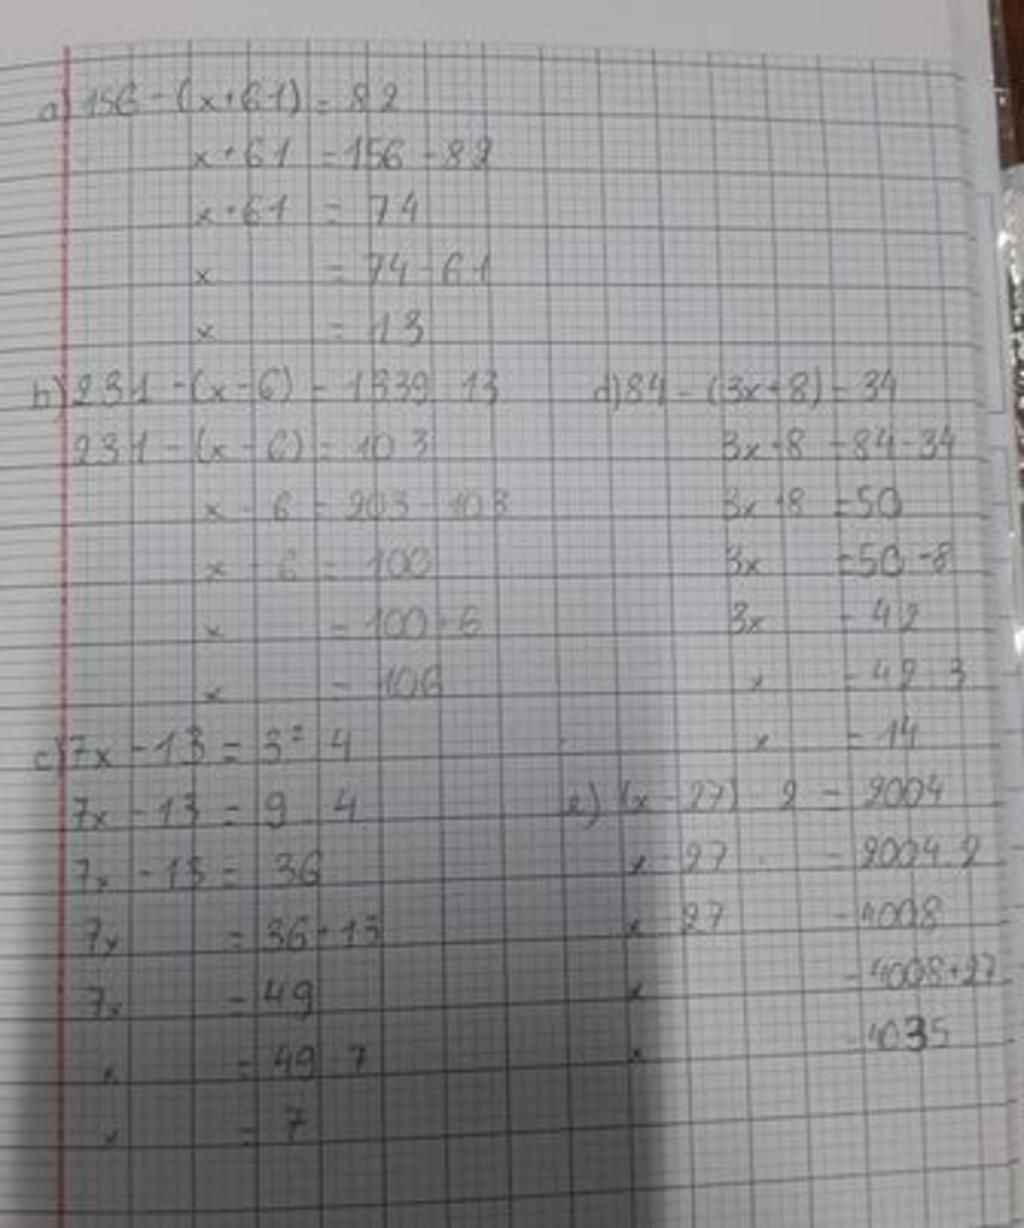 a) 156 - (x+61) = 82
x+61 = 156 - 82
x+61 = 74
x = 74-61
x = 13
b) 231 - (x-6) = 1339 : 13
231 - (x-6) = 103
x - 6 = 203 - 103
x - 6 = 100
x = 100+6
x = 106
c) 7x - 13 = 3² . 4
7x - 13 = 9 . 4
7x - 13 = 36
7x = 36+13
7x = 49
x = 49 : 7
x = 7
d) 84 - (3x+8) = 34
3x+8 = 84-34
3x+8 = 50
3x = 50-8
3x = 42
x = 42 : 3
x = 14
e) (x-27) : 2 = 2004
x-27 = 2004.2
x-27 = 4008
x = 4008+27
x = 4035